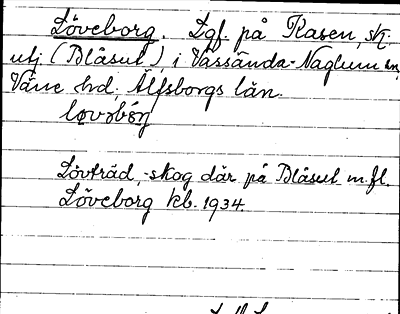 Löveborg. Lgf. på Rasen, sk.
utj (Blåsut) i Vassända-Naglum sn,
Väne hd, Älfsborgs län.
Lövträd, -skog där på Blåsut m.fl.
Löveborg kb. 1934.